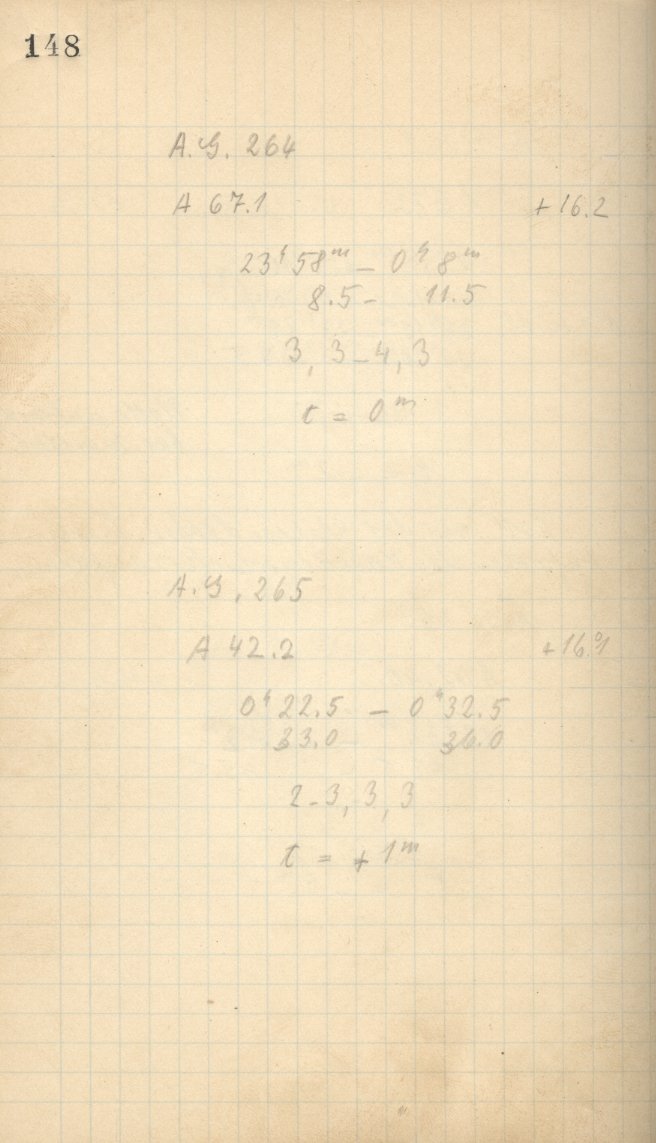 148
A.G. 264
A 67.1 +16.2
23ʰ 58ᵐ – 0ʰ 8ᵐ
8.5 – 11.5
3, 3–4, 3
t = 0ᵐ
A.G. 265
A 42.2 +16.1
0ʰ 22.5 – 0ʰ 32.5
33.0 36.0
2–3, 3, 3
t = +1ᵐ